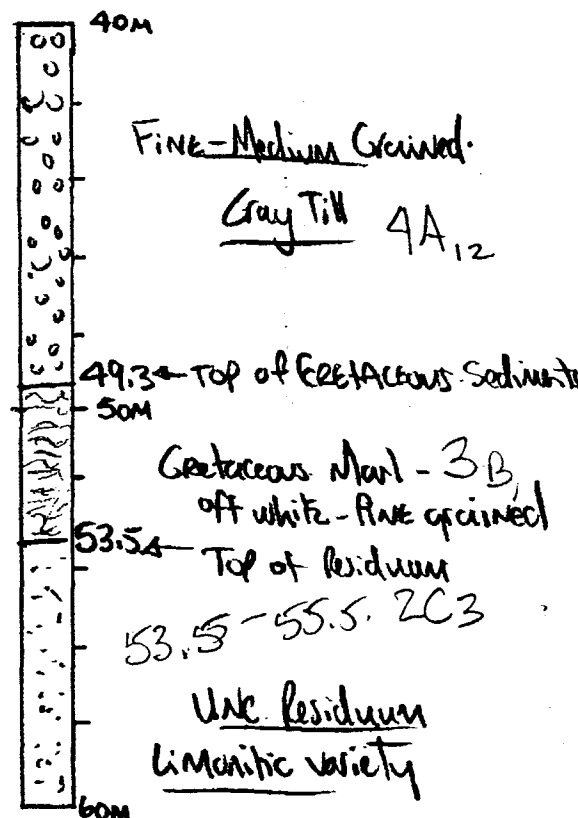 40M
Fine-Medium Grained.
Gray Till 4A12
49.3 ← Top of CRETACEOUS Sediments
50M
Cretaceous Marl - 3B,
off white - fine grained
53.5 ← Top of Residuum
53.5 - 55.5. 2C3
UNC. Residuum
Limonitic variety
60M